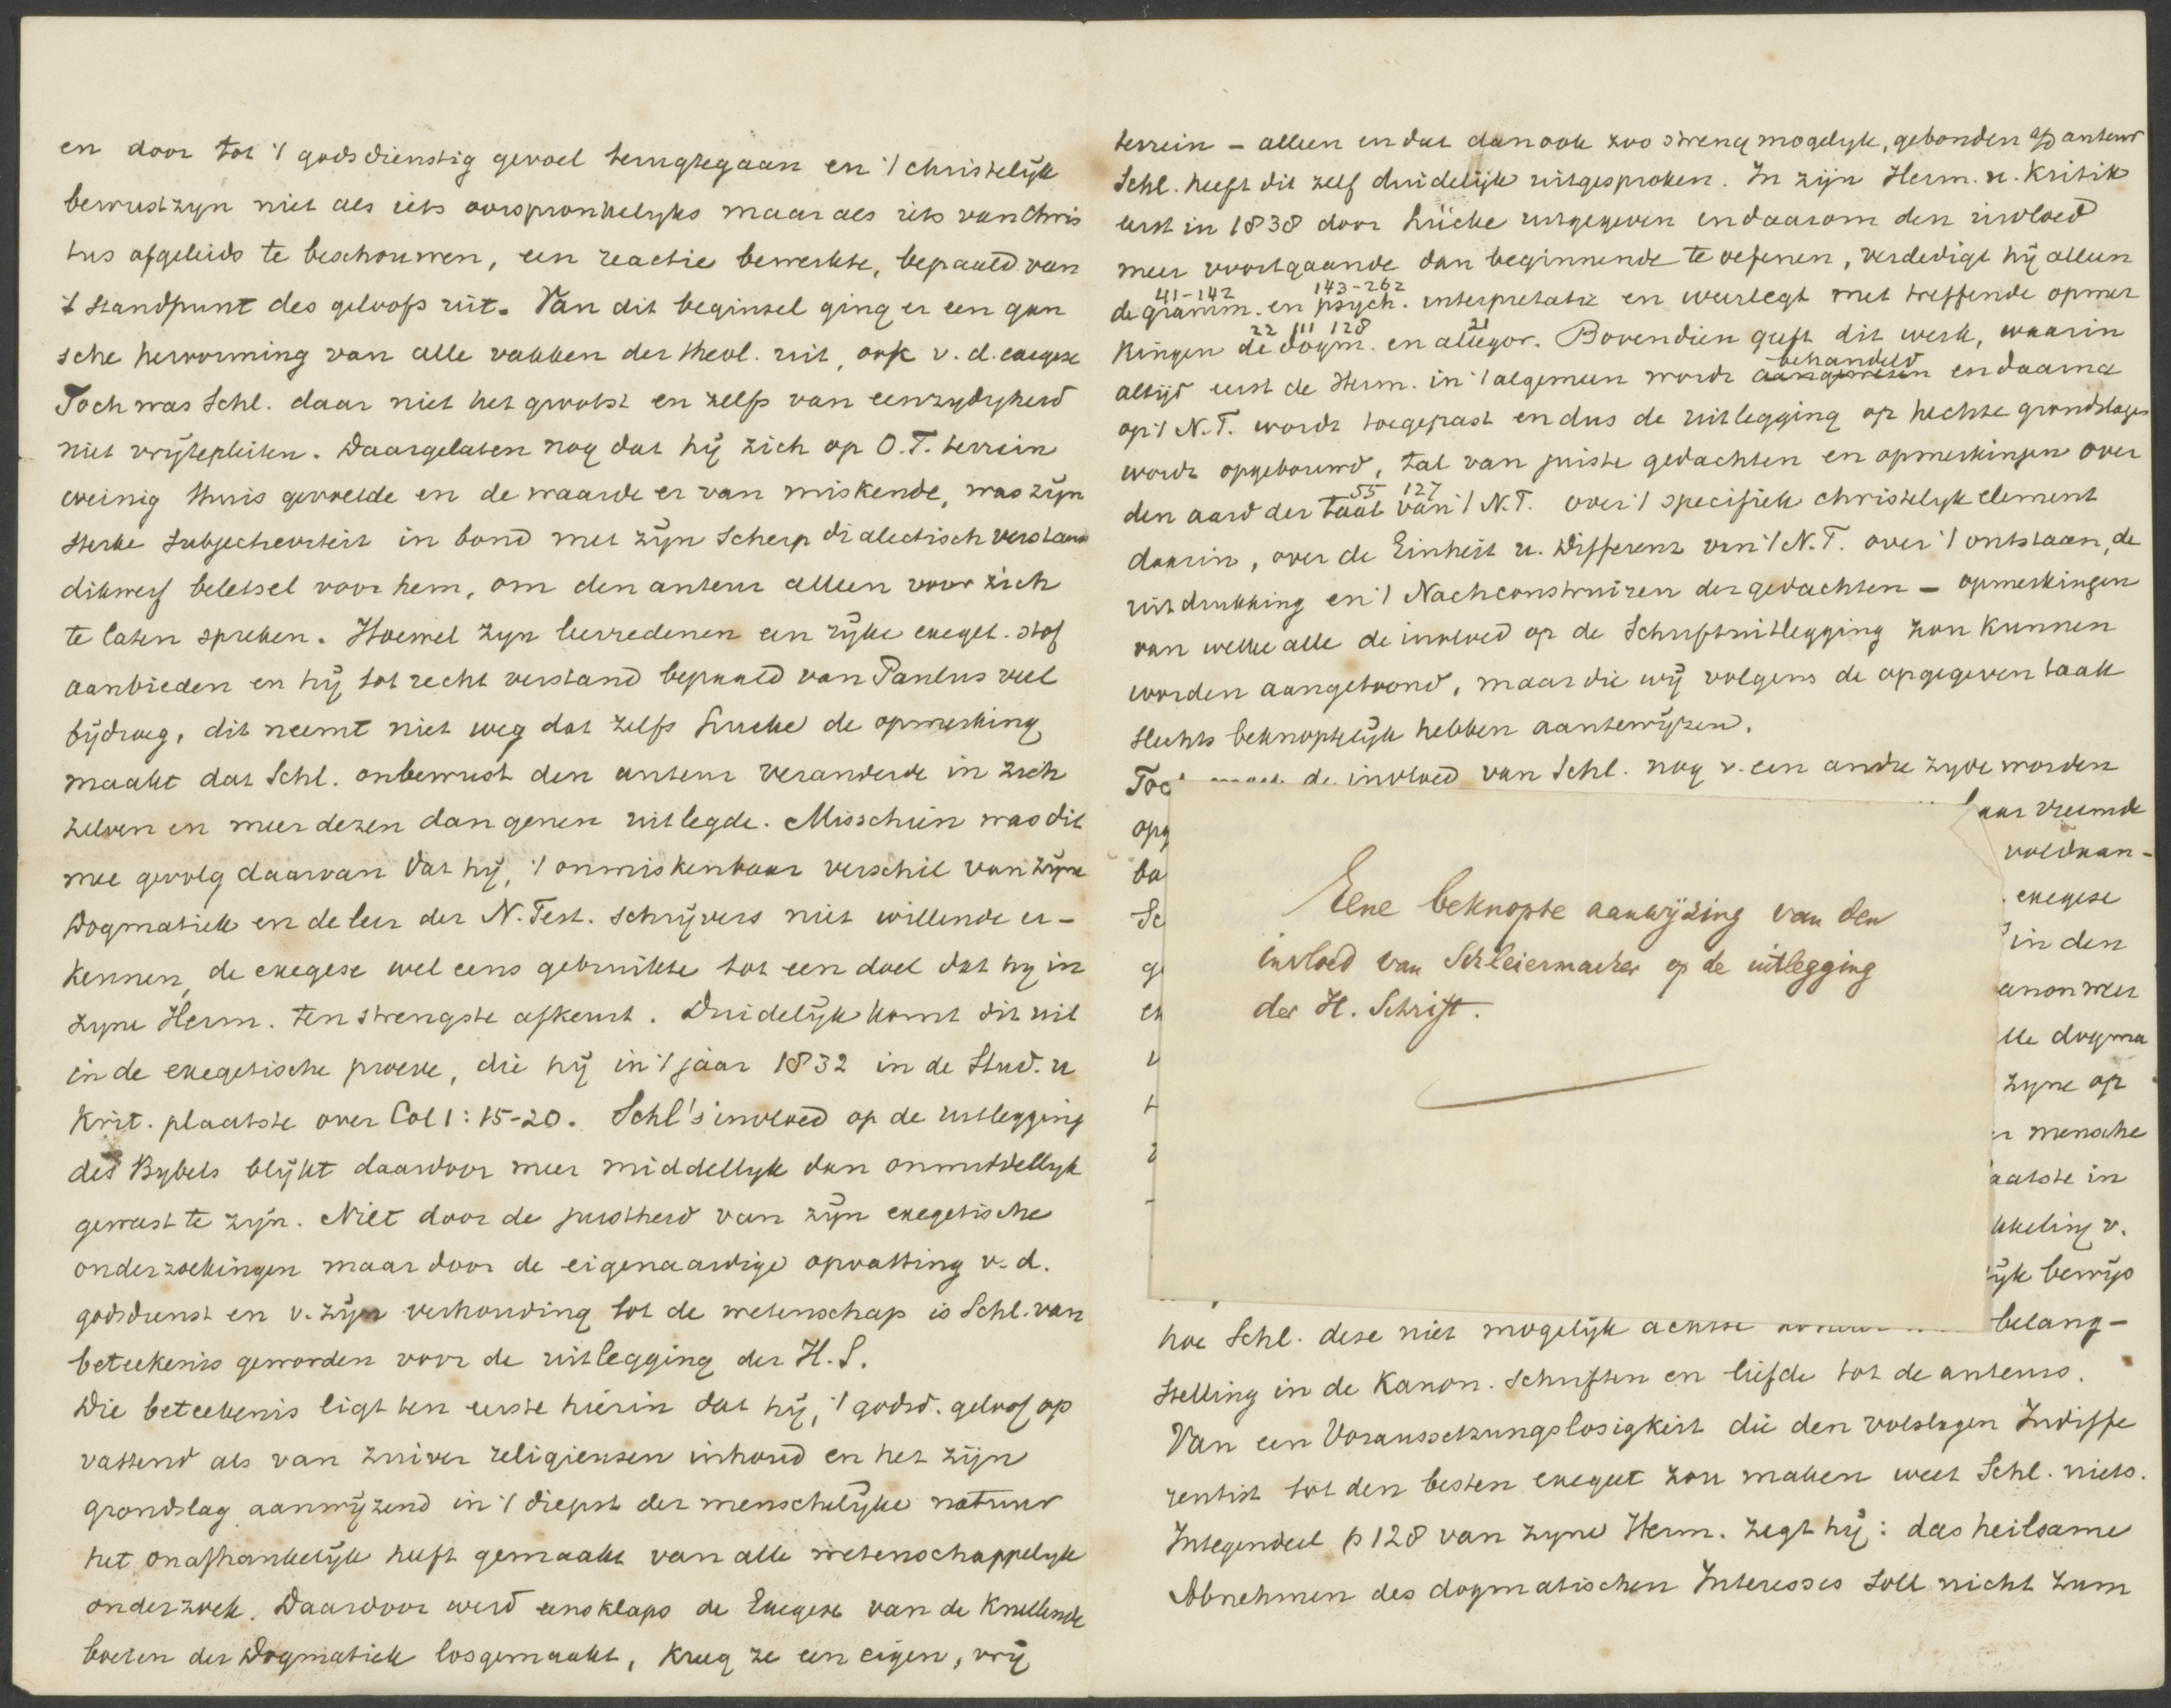 en door tot 't godsdienstig gevoel terugtegaan en 't christelijk
bewustzyn niet als iets oorspronkelyks maar als iets van Chris
tus afgeleids te beschouwen, een reactie bewerkte, bepaald van
't standpunt des geloofs uit. Van dit beginsel ging er een gan
sche hervorming van alle vakken der theol. uit, ook v. d. exegese
Toch was Schl. daar niet het grootst en zelfs van eenzydigheid
niet vrijtepleiten. Daargelaten nog dat hij zich op O.T. terrein
weinig thuis gevoelde en de waarde er van miskende, was zijn
sterke subjectiviteit in bond met zijn scherp dialectisch verstand
dikwerf beletsel voor hem, om den auteur alleen voor zich
te laten spreken. Hoewel zyn leerredenen een rijke exeget. stof
aanbieden en hij tot recht verstand bepaald van Paulus veel
bijdroeg, dit neemt niet weg dat zelfs Lucke de opmerking
maakt dat Schl. onbewust den auteur veranderde in zich
zelven en meer dezen dan genen uitlegde. Misschien was dit
mee gevolg daarvan dat hij, 't onmiskenbaar verschil van zijne
Dogmatiek en de leer der N. Test. schrijvers niet willende er-
kennen, de exegese wel eens gebruikte tot een doel dat hy in
zyne Herm. ten strengste afkeurt. Duidelijk komt dit uit
in de exegetische proeve, die hij in 't jaar 1832 in de Stud. u
Krit. plaatste over Col 1: 15-20. Schl's invloed op de uitlegging
des Bybels blijkt daardoor meer middellyk dan onmiddellyk
geweest te zijn. Niet door de juistheid van zijn exegetische
onderzoekingen maar door de eigenaardige opvatting v. d.
godsdienst en v. zijn verhouding tot de wetenschap is Schl. van
beteekenis geworden voor de uitlegging der H.S.
Die beteekenis ligt ten eerste hierin dat hij, 't godsd. geloof op
vattend als van zuiver religieusen inhoud en het zijn
grondslag aanwijzend in 't diepst der menschelijke natuur
het onafhankelijk heeft gemaakt van alle wetenschappelyk
onderzoek. Daardoor werd eensklaps de Exegese van de knellende
boeien der Dogmatiek losgemaakt, kreeg ze een eigen, vrij
terrein – alleen en dat dan ook zoo streng mogelyk, gebonden a/d auteur
Schl. heeft dit zelf duidelijk uitgesproken. In zijn Herm. u. Kritik
eerst in 1838 door Lücke uitgegeven en daarom den invloed
meer voortgaande dan beginnende te oefenen, verdedigt hij alleen
41-142 143-262
de gramm. en psych. interpretatie en weerlegt met treffende opmer
22 111 128 21
kingen de dogm. en allegor. Bovendien geeft dit werk, waarin
behandeld
altijd eerst de Herm. in 't algemeen wordt aangewezen en daarna
op 't N.T. wordt toegepast en dus de uitlegging op hechte grondslagen
wordt opgebouwd, tal van juiste gedachten en opmerkingen over
55 127
den aard der taal van 't N.T. over 't specifiek christelyk element
daarin, over de Einheit u. Differenz van 't N.T. over 't ontstaan, de
uitdrukking en 't Nachconstruiren der gedachten – opmerkingen
van welke alle de invloed op de Schriftuitlegging zou kunnen
worden aangetoond, maar die wij volgens de opgegeven taak
slechts beknoptelijk hebben aantewijzen.
de invloed van Schl. nog v. een andre zyde worden
Eene beknopte aanwijzing van den
invloed van Schleiermacher op de uitlegging
der H. Schrift.
vreemde
voldaan-
exegese
in den
dogma
zyne op
mensche
in
v.
bewijs
belang-
hoe Schl. deze niet mogelijk achtte
stelling in de Kanon. schriften en liefde tot de auteurs.
Van een Voraussetzungslosigkeit die den volslagen Indiffe
rentist tot den besten exegeet zou maken weet Schl. niets.
Integendeel p 128 van zyne Herm. zegt hij: das heilsame
Abnehmen des dogmatischen Interesses soll nicht zum